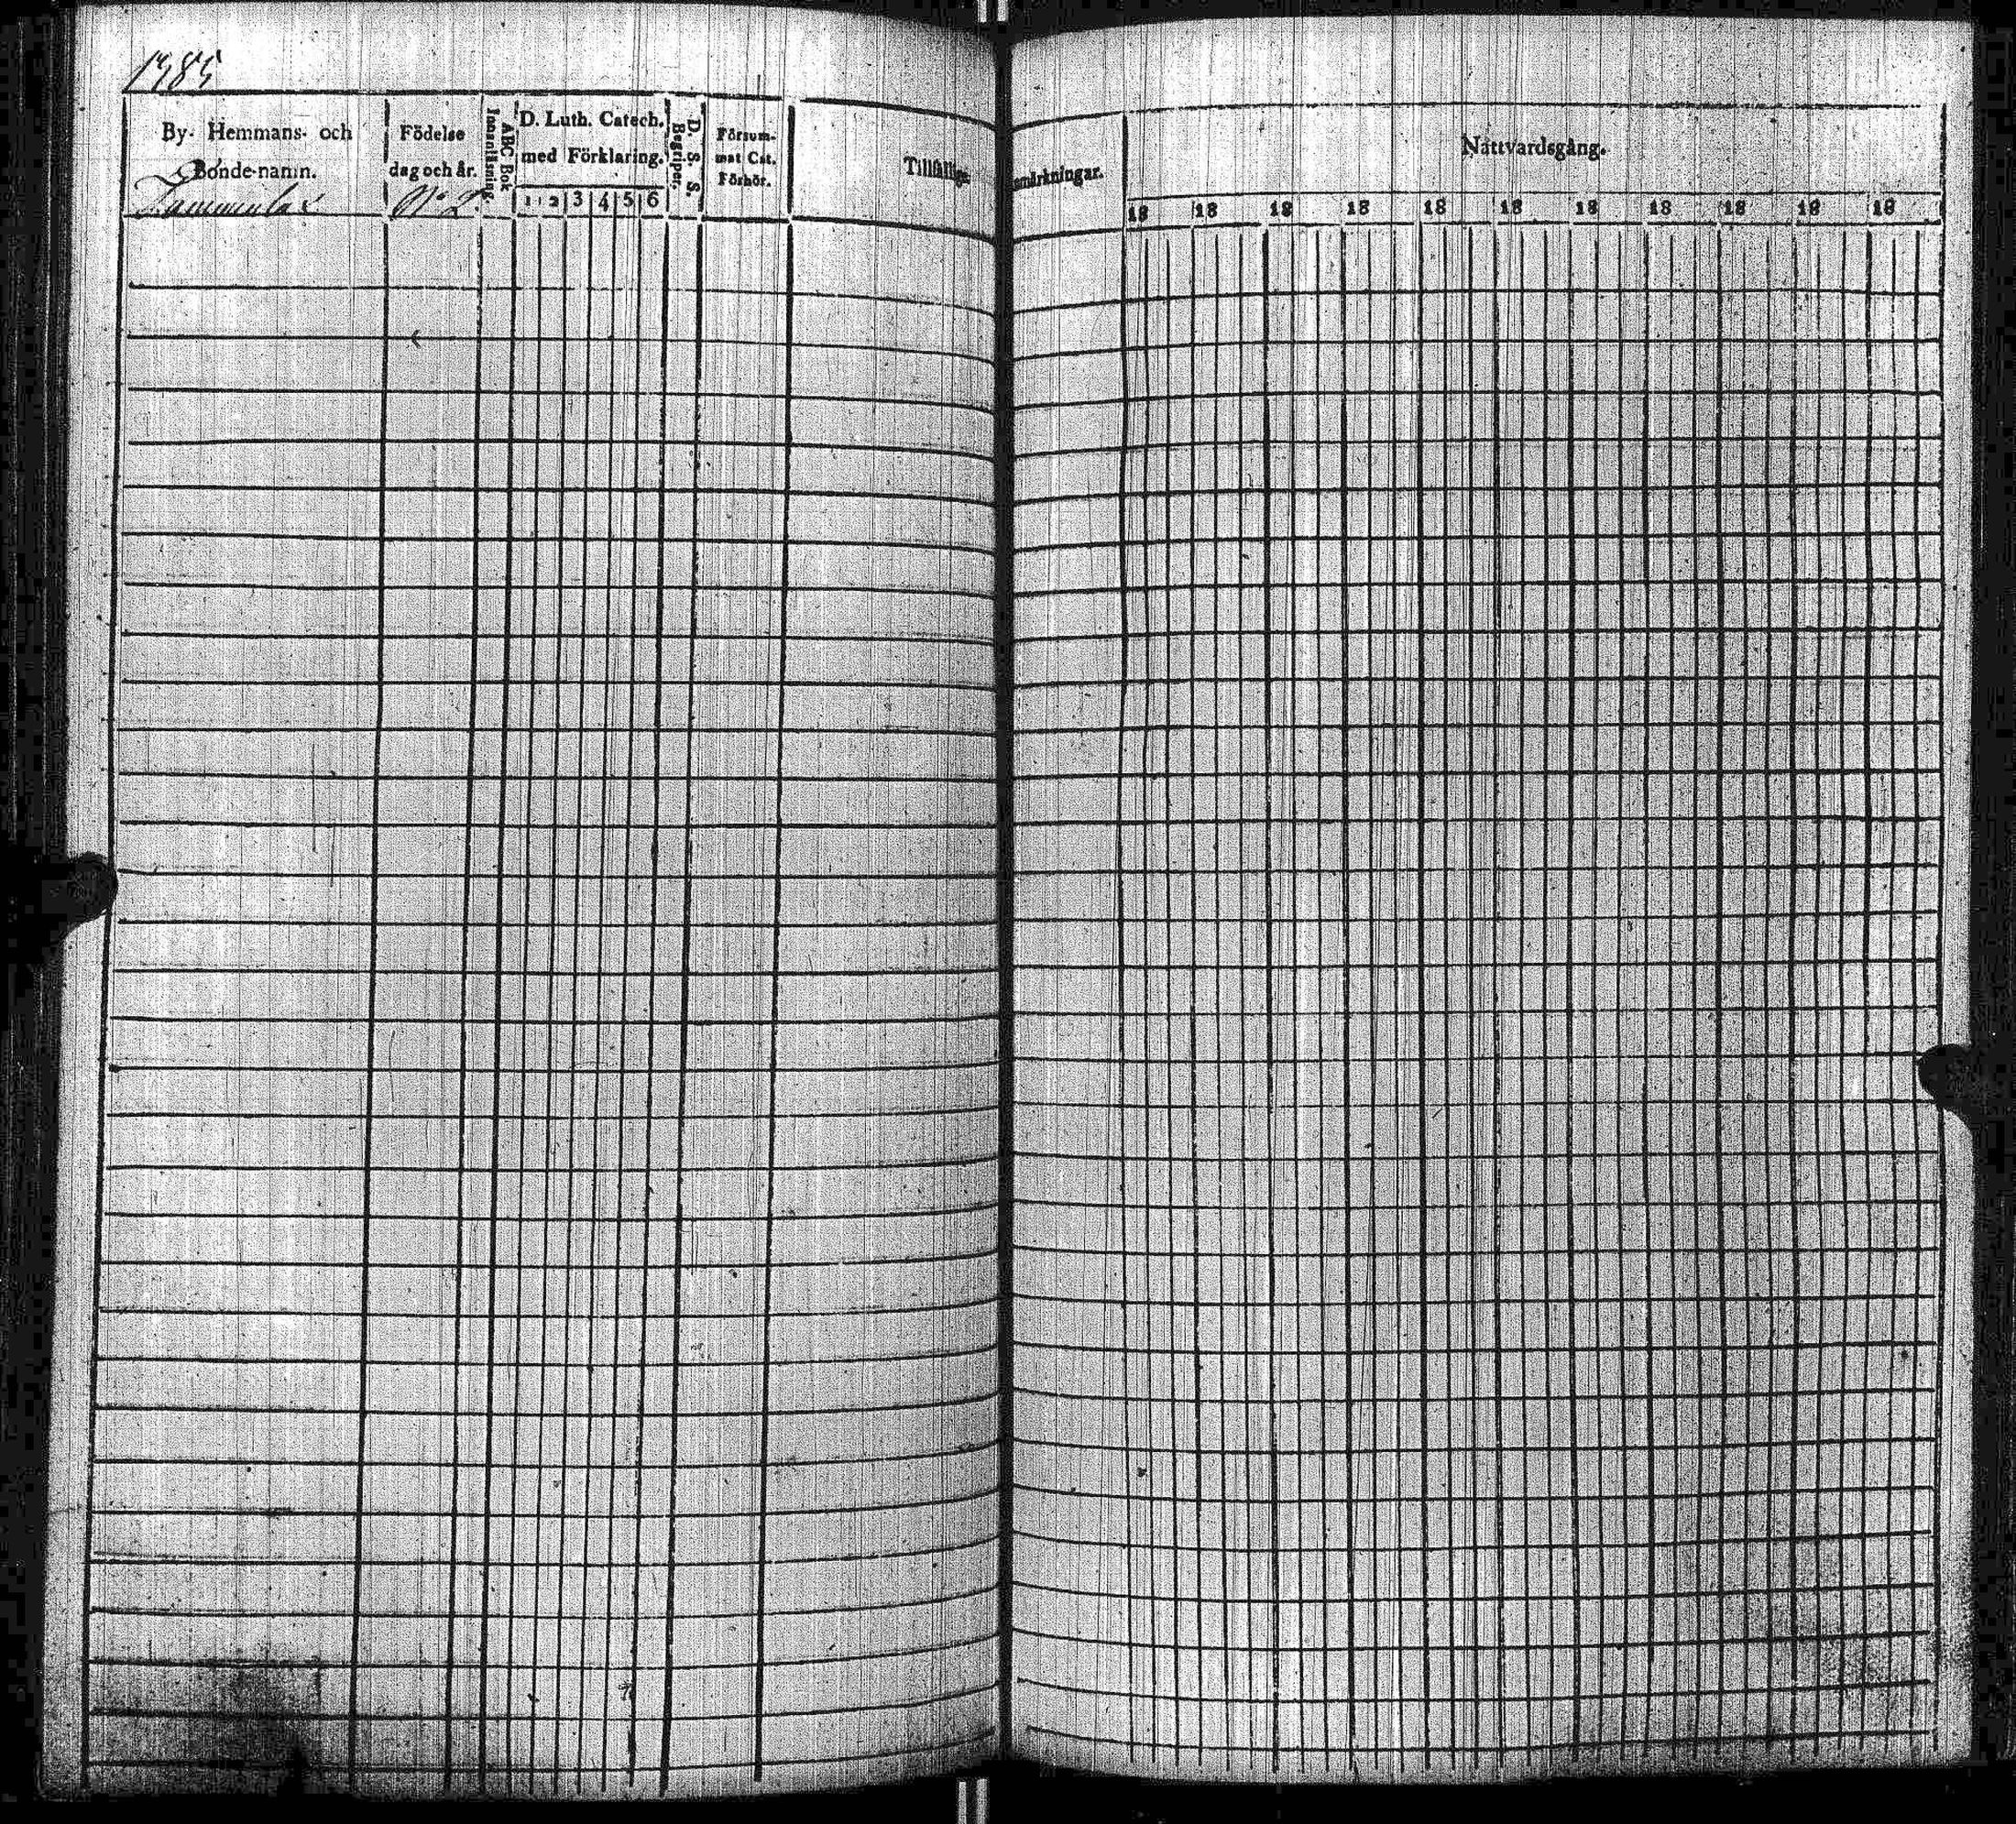 By- Hemmans- och
Bonde-namn.
Födelse
dag och år.
No 2.
Innanläsning.
ABC Bok
D. Luth. Catech.
med Förklaring.
1 2 3 4 5 6
D. S. S.
Begriper.
Försum-
mat Cat.
Förhör.
Tillfällige
anmärkningar.
Nattvardsgång.
18 18 18 18 18 18 18 18 18 18 18